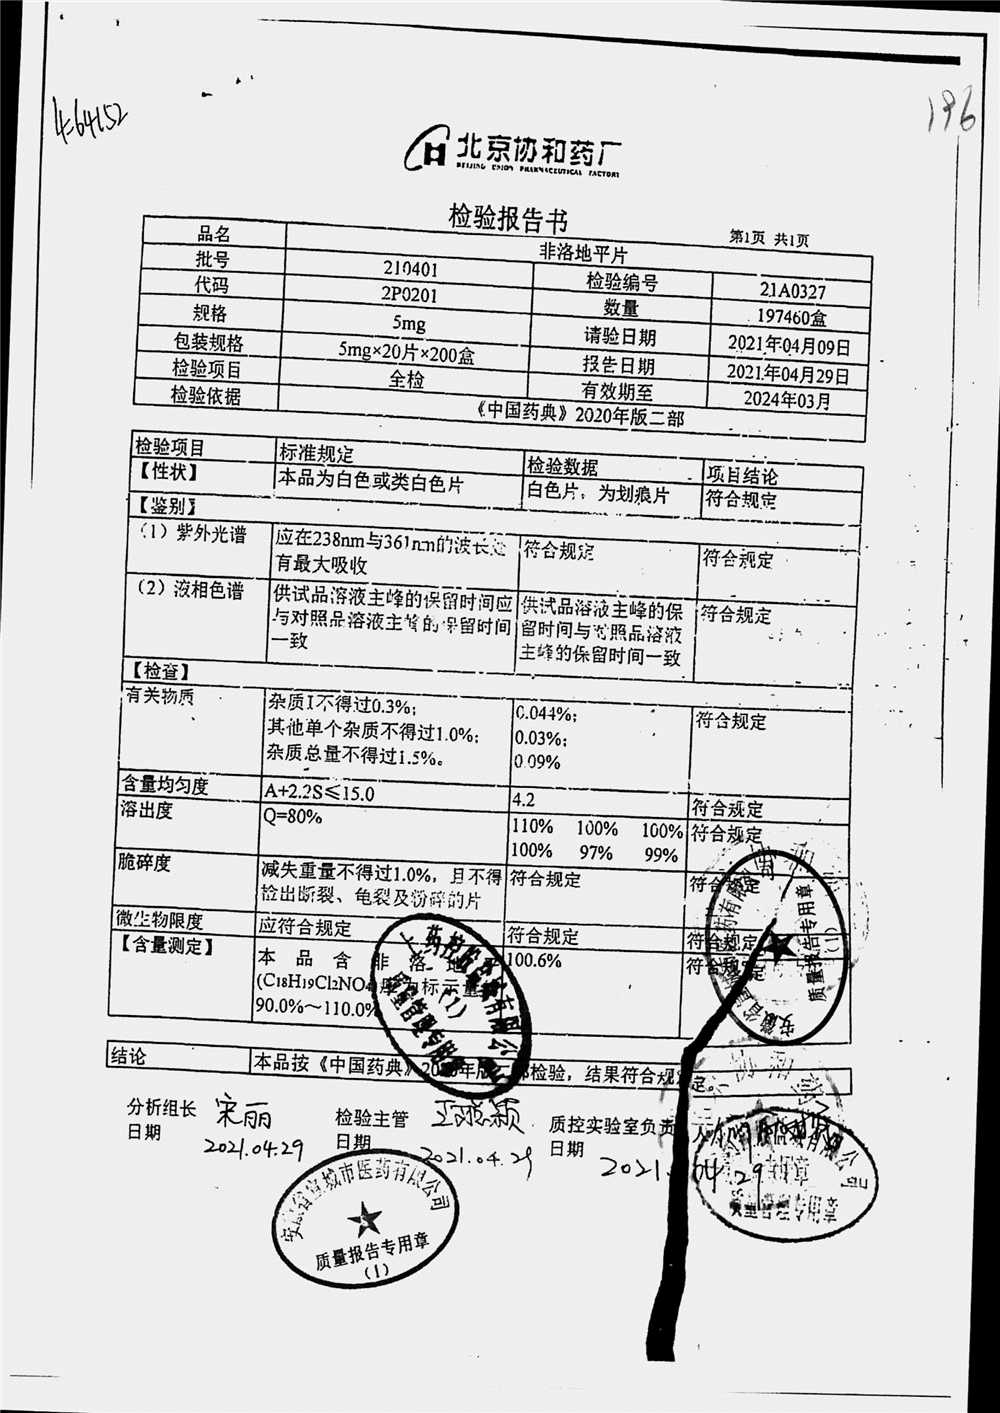 464152
196
北京协和药厂
BEIJING UNION PHARMACEUTICAL FACTORY
检验报告书
第1页 共1页
品名 非洛地平片
批号 210401 检验编号 21A0327
代码 2P0201 数量 197460盒
规格 5mg 请验日期 2021年04月09日
包装规格 5mg×20片×200盒 报告日期 2021年04月29日
检验项目 全检 有效期至 2024年03月
检验依据 《中国药典》2020年版二部
检验项目 标准规定 检验数据 项目结论
【性状】 本品为白色或类白色片 白色片，为划痕片 符合规定
【鉴别】
（1）紫外光谱 应在238nm与361nm的波长处 符合规定 符合规定
有最大吸收
（2）液相色谱 供试品溶液主峰的保留时间应 供试品溶液主峰的保 符合规定
与对照品溶液主峰的保留时间 留时间与对照品溶液
一致 主峰的保留时间一致
【检查】
有关物质 杂质I不得过0.3%； 0.044%； 符合规定
其他单个杂质不得过1.0%； 0.03%；
杂质总量不得过1.5%。 0.09%
含量均匀度 A+2.2S≤15.0 4.2 符合规定
溶出度 Q=80% 110% 100% 100% 符合规定
100% 97% 99%
脆碎度 减失重量不得过1.0%，且不得 符合规定 符合规定
检出断裂、龟裂及粉碎的片
微生物限度 应符合规定 符合规定 符合规定
【含量测定】 本品含非洛地平 100.6% 符合规定
(C18H19Cl2NO4)应为标示量
90.0%～110.0%
结论 本品按《中国药典》2020年版二部检验，结果符合规定。
分析组长 宋丽 检验主管 质控实验室负责人
日期 2021.04.29 日期 2021.04.29 日期 2021.04.29
安徽省宣城市医药有限公司
质量报告专用章
（1）
质量报告专用章
（1）
质量管理专用章
（1）